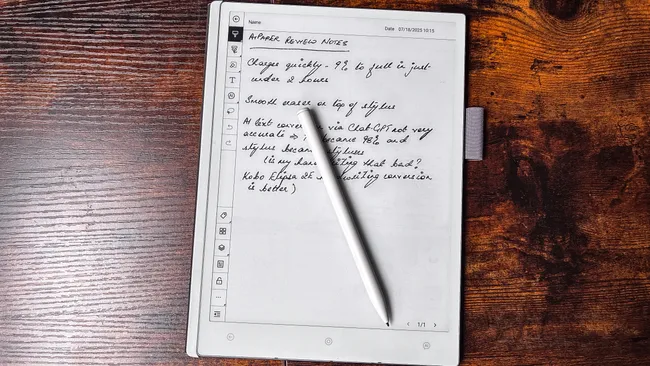 Name:
Date 07/18/2025 10:15
AiPaper Review Notes
Charges quickly - 9% to full in just
under 2 hours
Smooth eraser on top of stylus
AI text via Chat-GPT not very
accurate became 98% and
stylus became
(is my that bad?
Kobo Elipsa 2E conversion
is better)
1/1